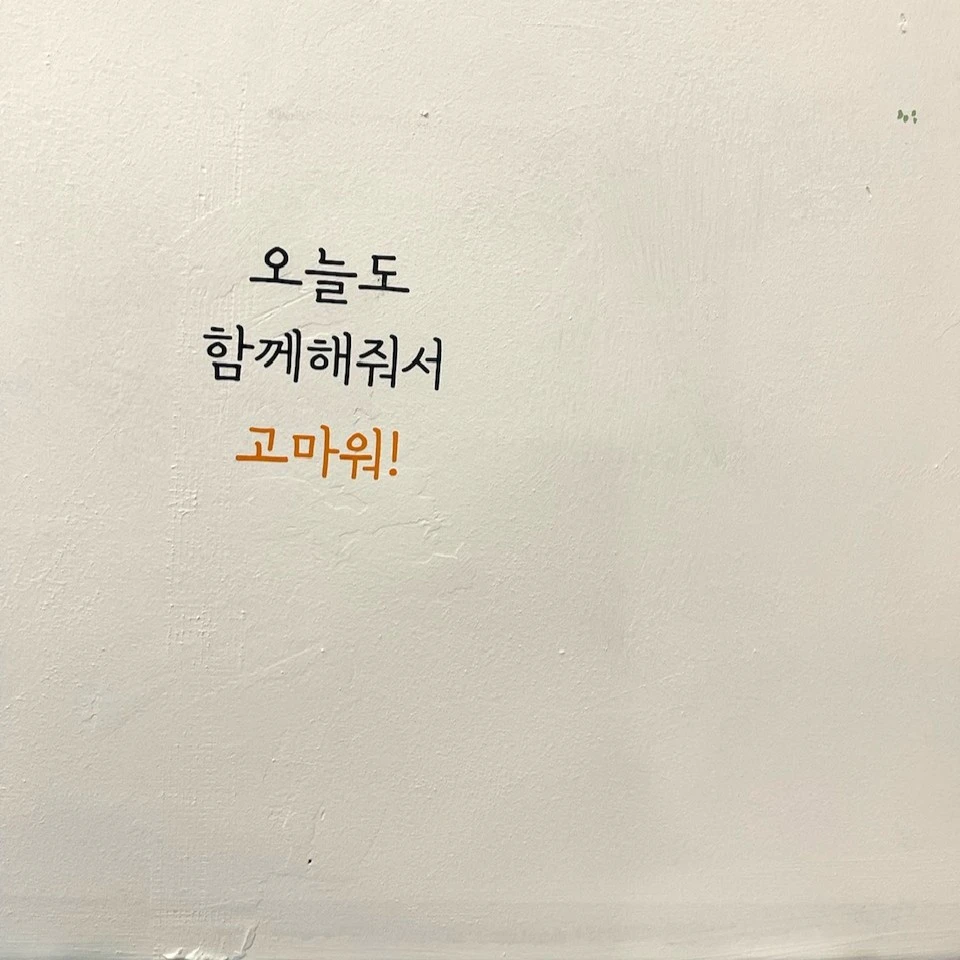 오늘도
함께해줘서
고마워!